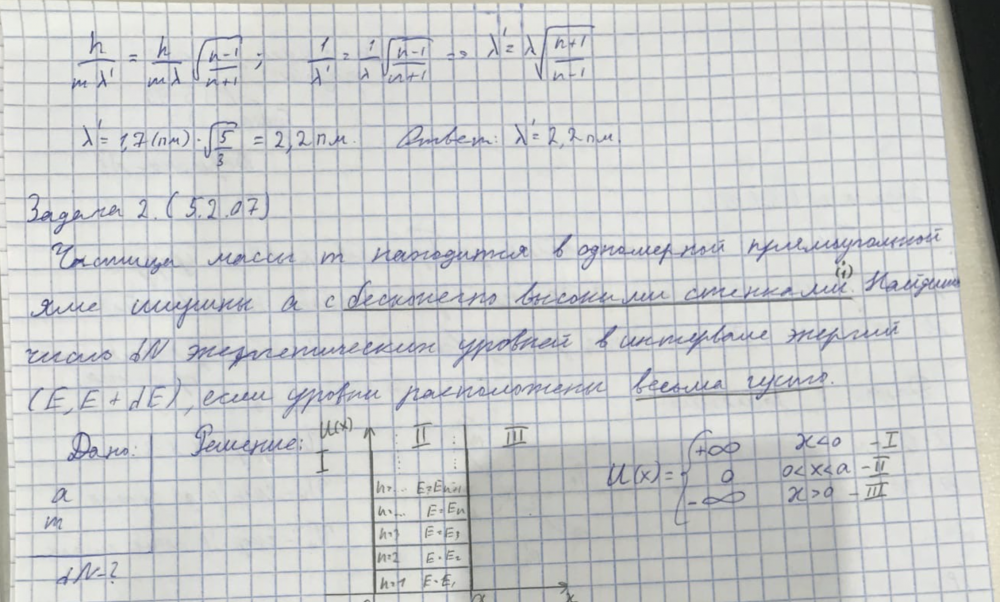 h/(mλ') = h/(mλ) √((n-1)/(n+1)); 1/λ' = 1/λ √((n-1)/(n+1)) => λ' = λ √((n+1)/(n-1))
λ' = 1,7(пм)·√(5/3) = 2,2 пм. Ответ: λ' = 2,2 пм.
Задача 2. (5.2.07)
Частица массы m находится в одномерной прямоугольной
яме ширины a с бесконечно высокими стенками (1). Найдите
число dN энергетических уровней в интервале энергий
(E, E + dE), если уровни расположены весьма густо.
Дано: Решение: U(x) I II III
a
m
dN-?
n=... E=Eₙ₊₁
n=... E=Eₙ
n=3 E=E₃
n=2 E=E₂
n=1 E=E₁
a x
U(x) = { +∞ x<0 - I
0 0<x<a - II
-∞ x>a - III